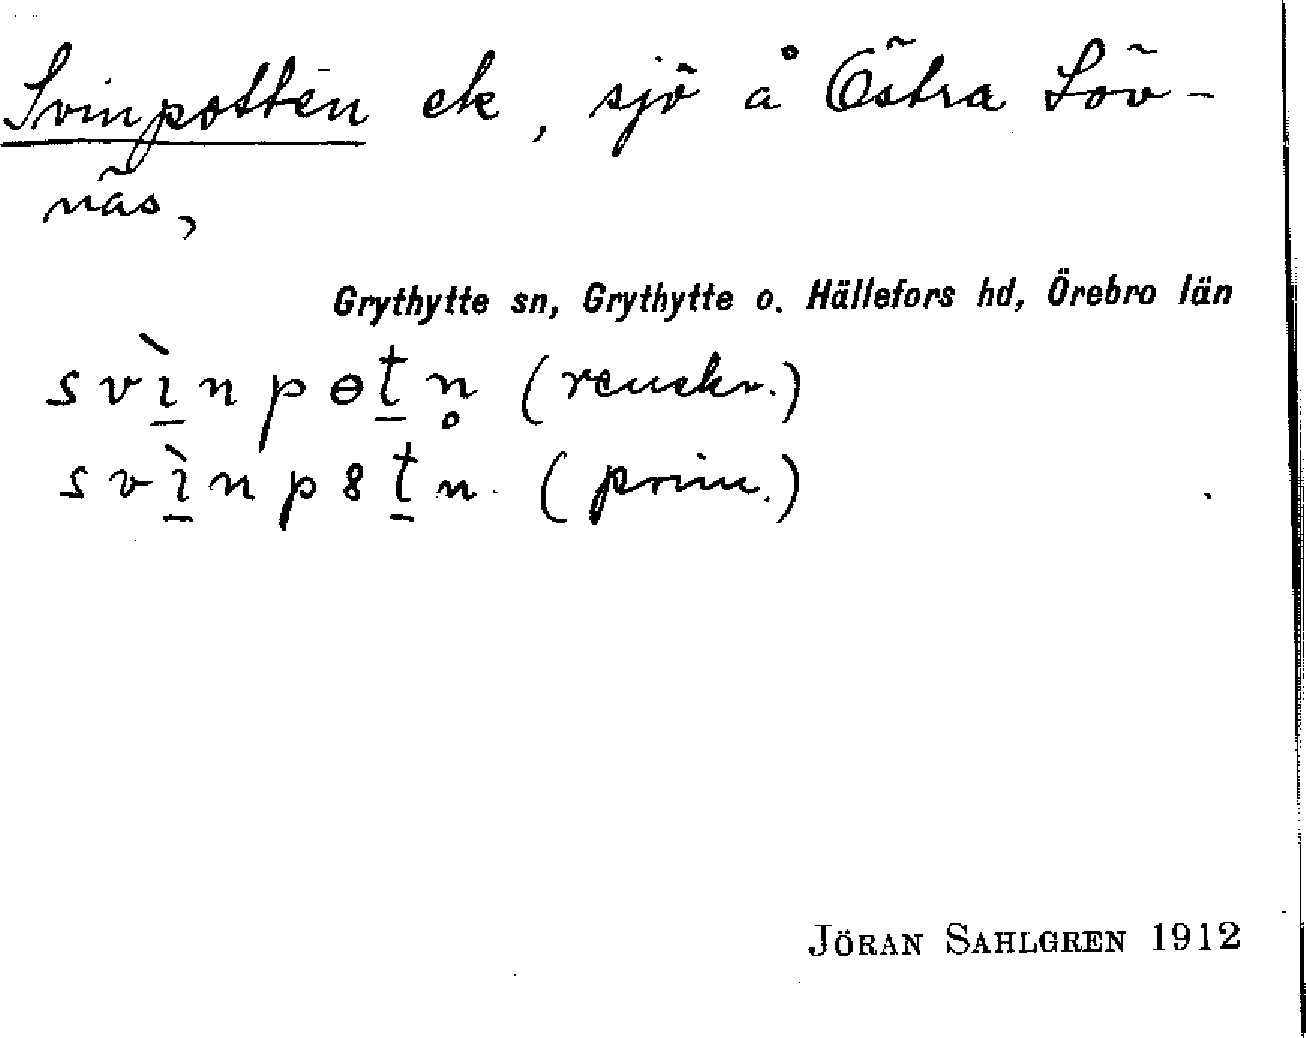 Svinpotten ek, sjö å Östra Löv-
näs,
Grythytte sn, Grythytte o. Hällefors hd, Örebro län
svı̱̀npɵṯn̥ (renskr.)
svı̱̀np8ṯn (prim.)
JÖRAN SAHLGREN 1912